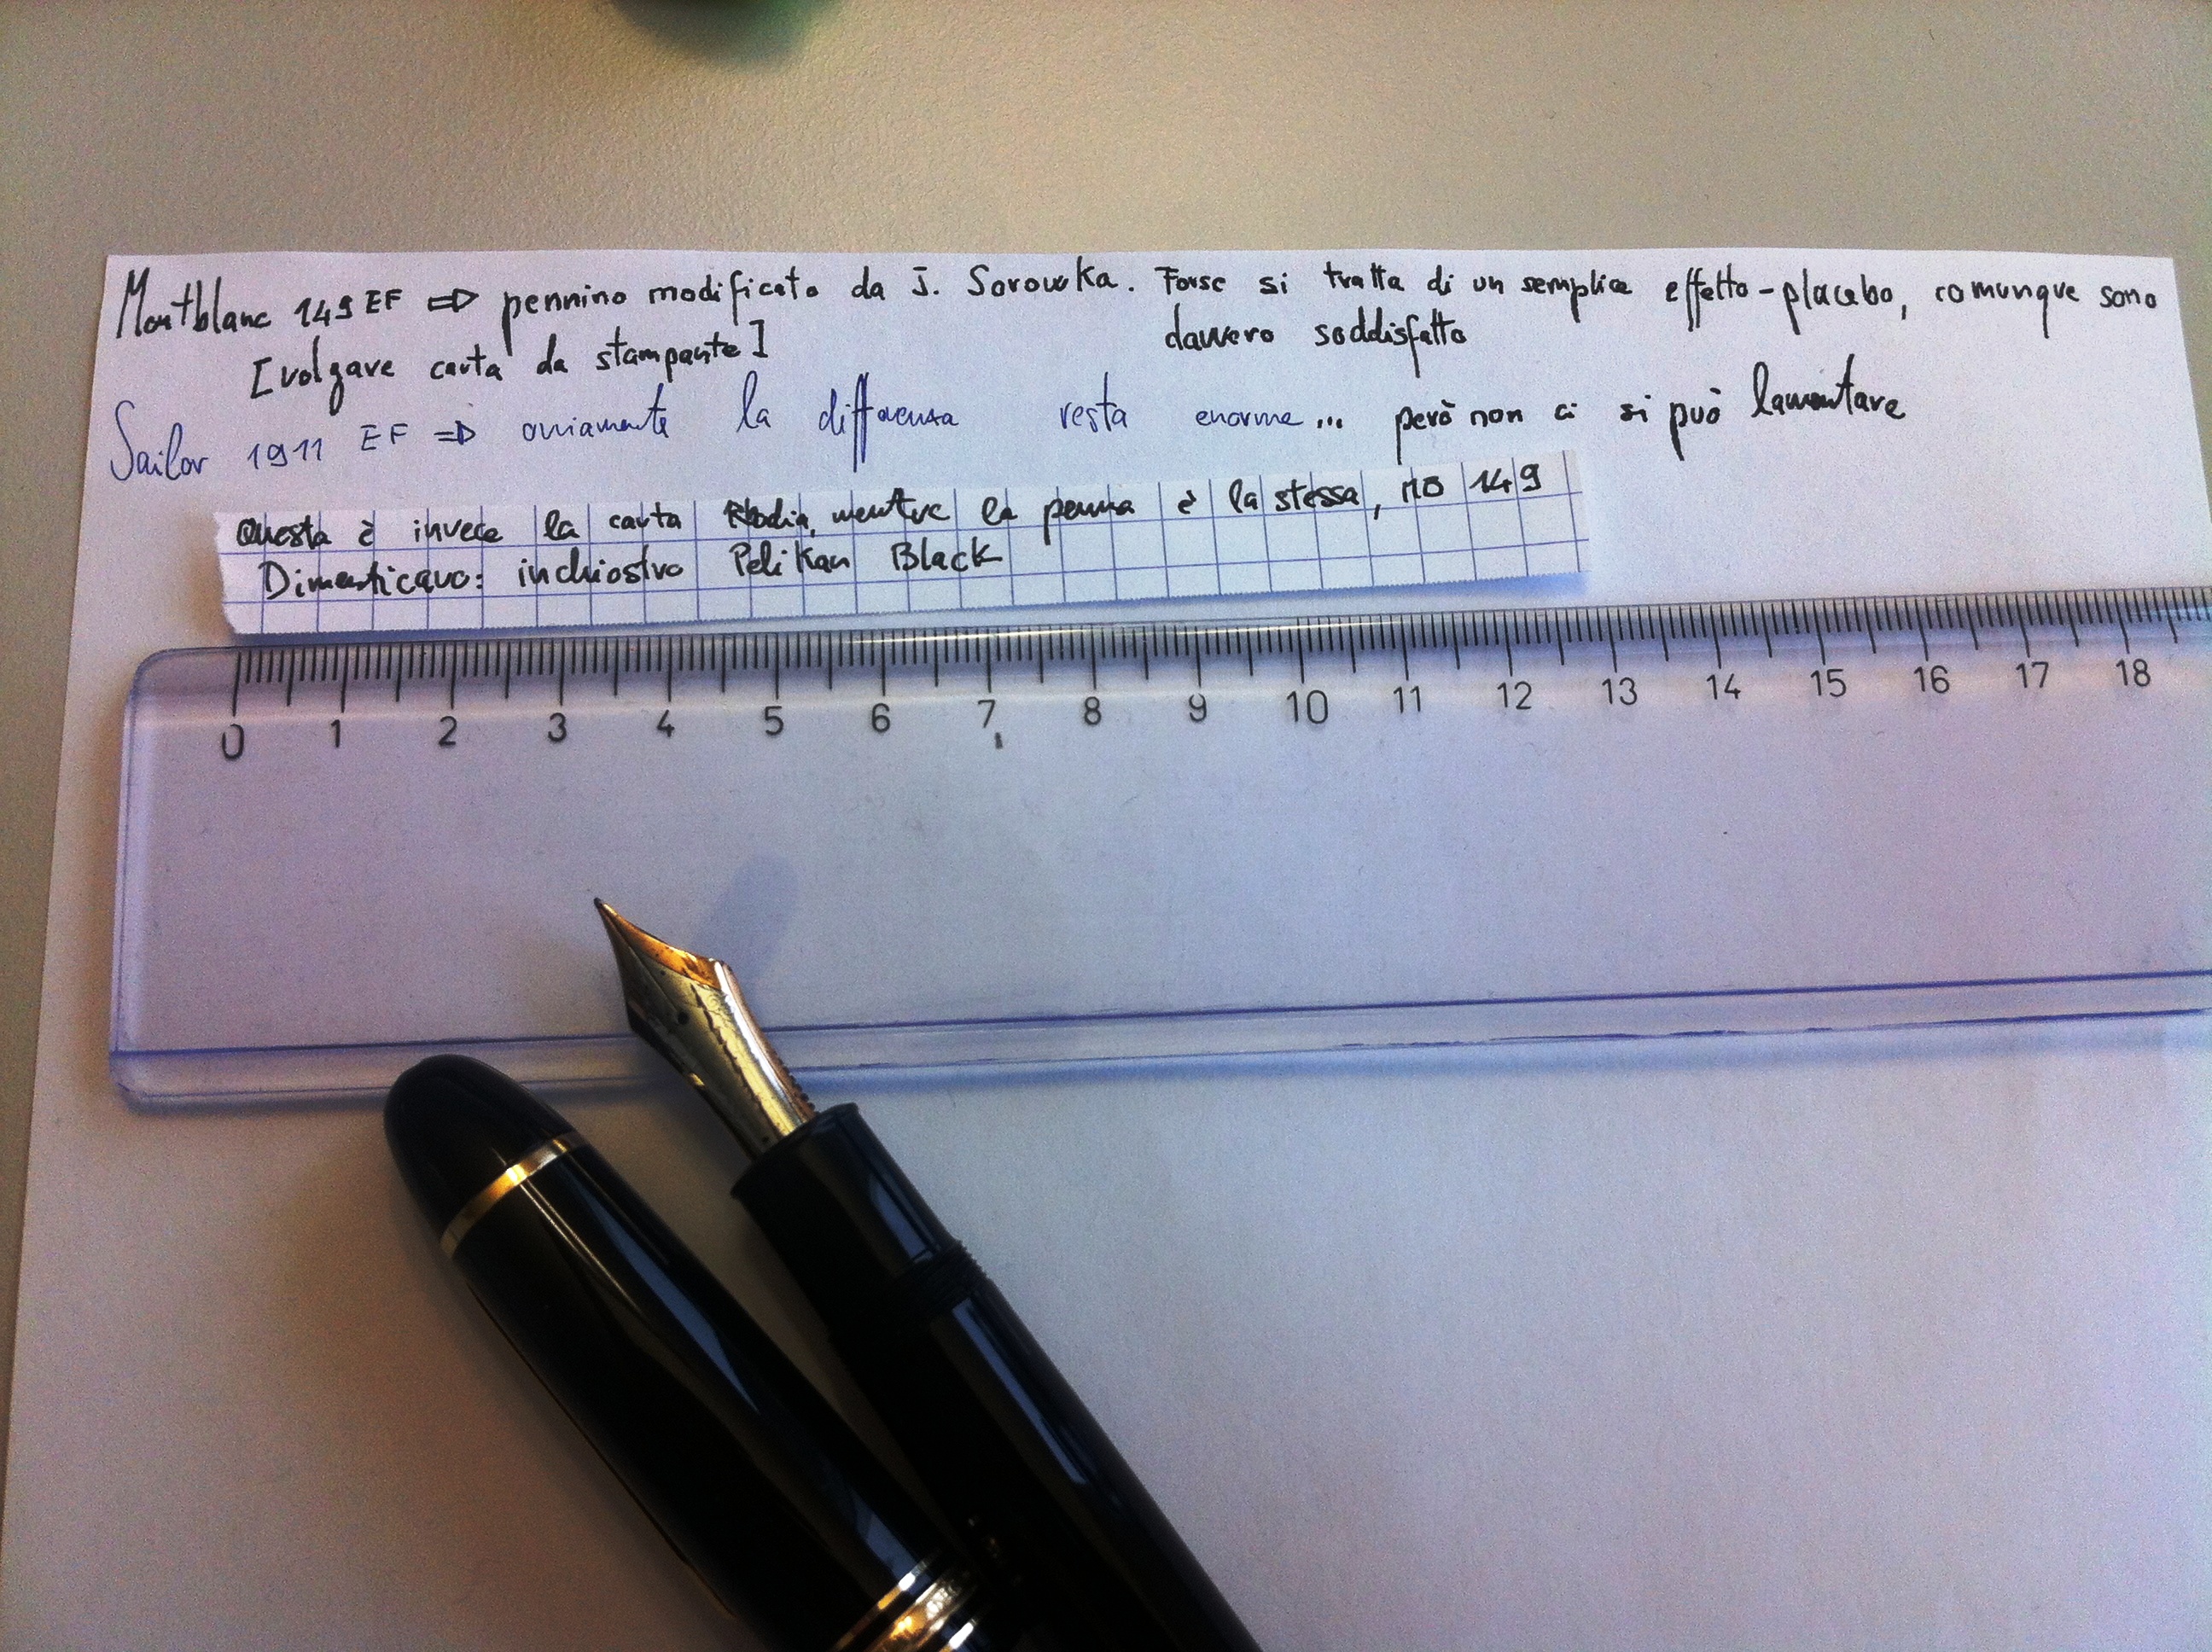 Montblanc 149 EF => pennino modificato da J. Sorowka. Forse si tratta di un semplice effetto-placebo, comunque sono
[volgare carta da stampante] davvero soddisfatto
Sailor 1911 EF => ovviamente la differenza resta enorme... però non ci si può lamentare
Questa è invece la carta Rhodia, mentre la penna è la stessa, MB 149
Dimenticavo: inchiostro Pelikan Black
0 1 2 3 4 5 6 7 8 9 10 11 12 13 14 15 16 17 18